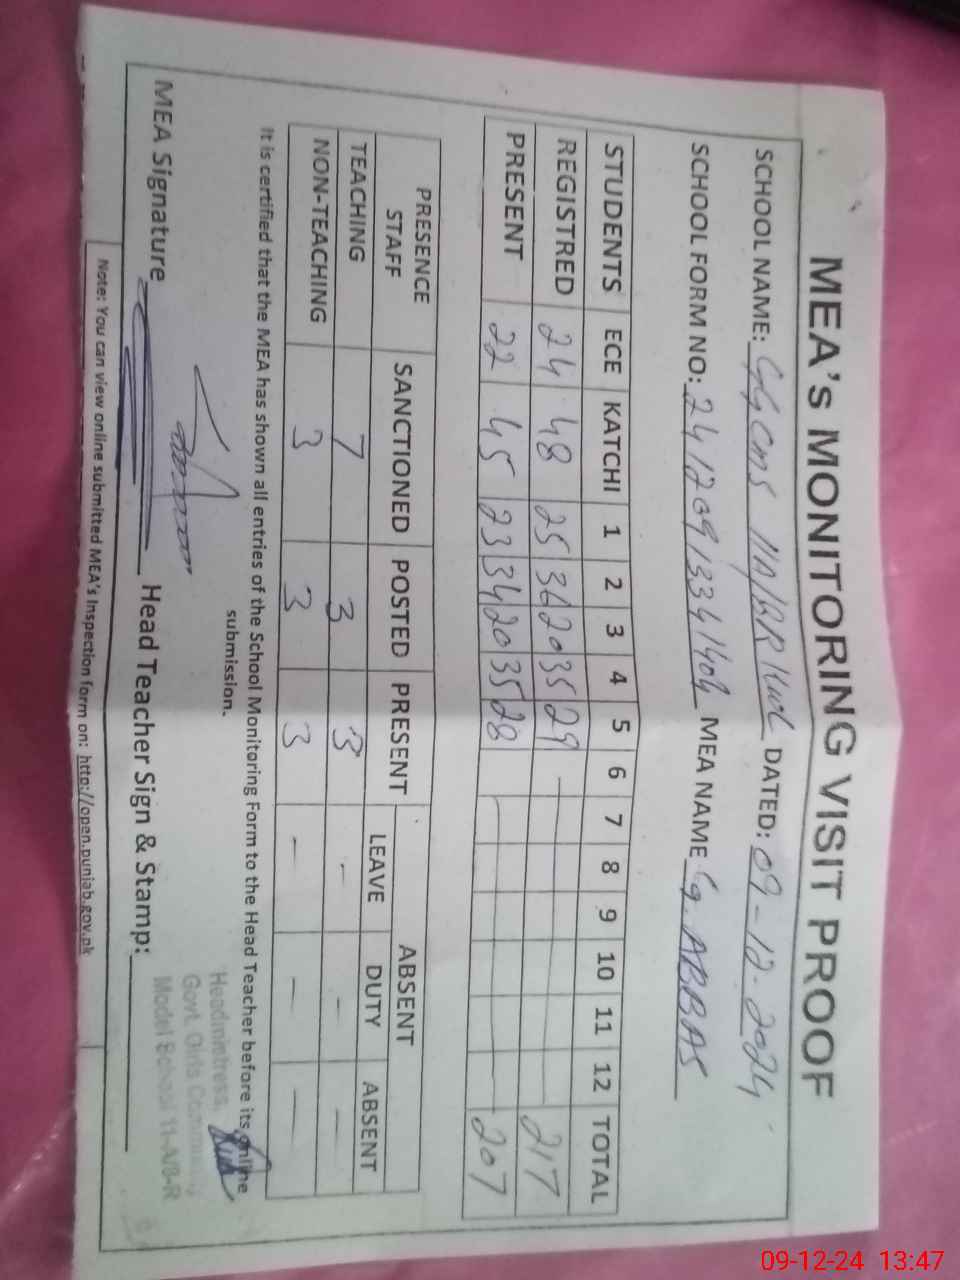 MEA's MONITORING VISIT PROOF
SCHOOL NAME: GGCMS 11A/8R Kwl DATED: 09-12-2024
SCHOOL FORM NO: 24120913341404 MEA NAME G. ABBAS
STUDENTS ECE KATCHI 1 2 3 4 5 6 7 8 9 10 11 12 TOTAL
REGISTRED 24 48 25 36 20 35 29 217
PRESENT 22 45 23 34 20 35 28 207
PRESENCE STAFF SANCTIONED POSTED PRESENT ABSENT
LEAVE DUTY ABSENT
TEACHING 7 3 3 - - -
NON-TEACHING 3 3 3 - - -
It is certified that the MEA has shown all entries of the School Monitoring Form to the Head Teacher before its online
submission.
Headmistress,
Govt. Girls Community
Model School 11-A/8-R
MEA Signature Head Teacher Sign & Stamp:
Note: You can view online submitted MEA's Inspection form on: http://open.punjab.gov.pk
09-12-24 13:47